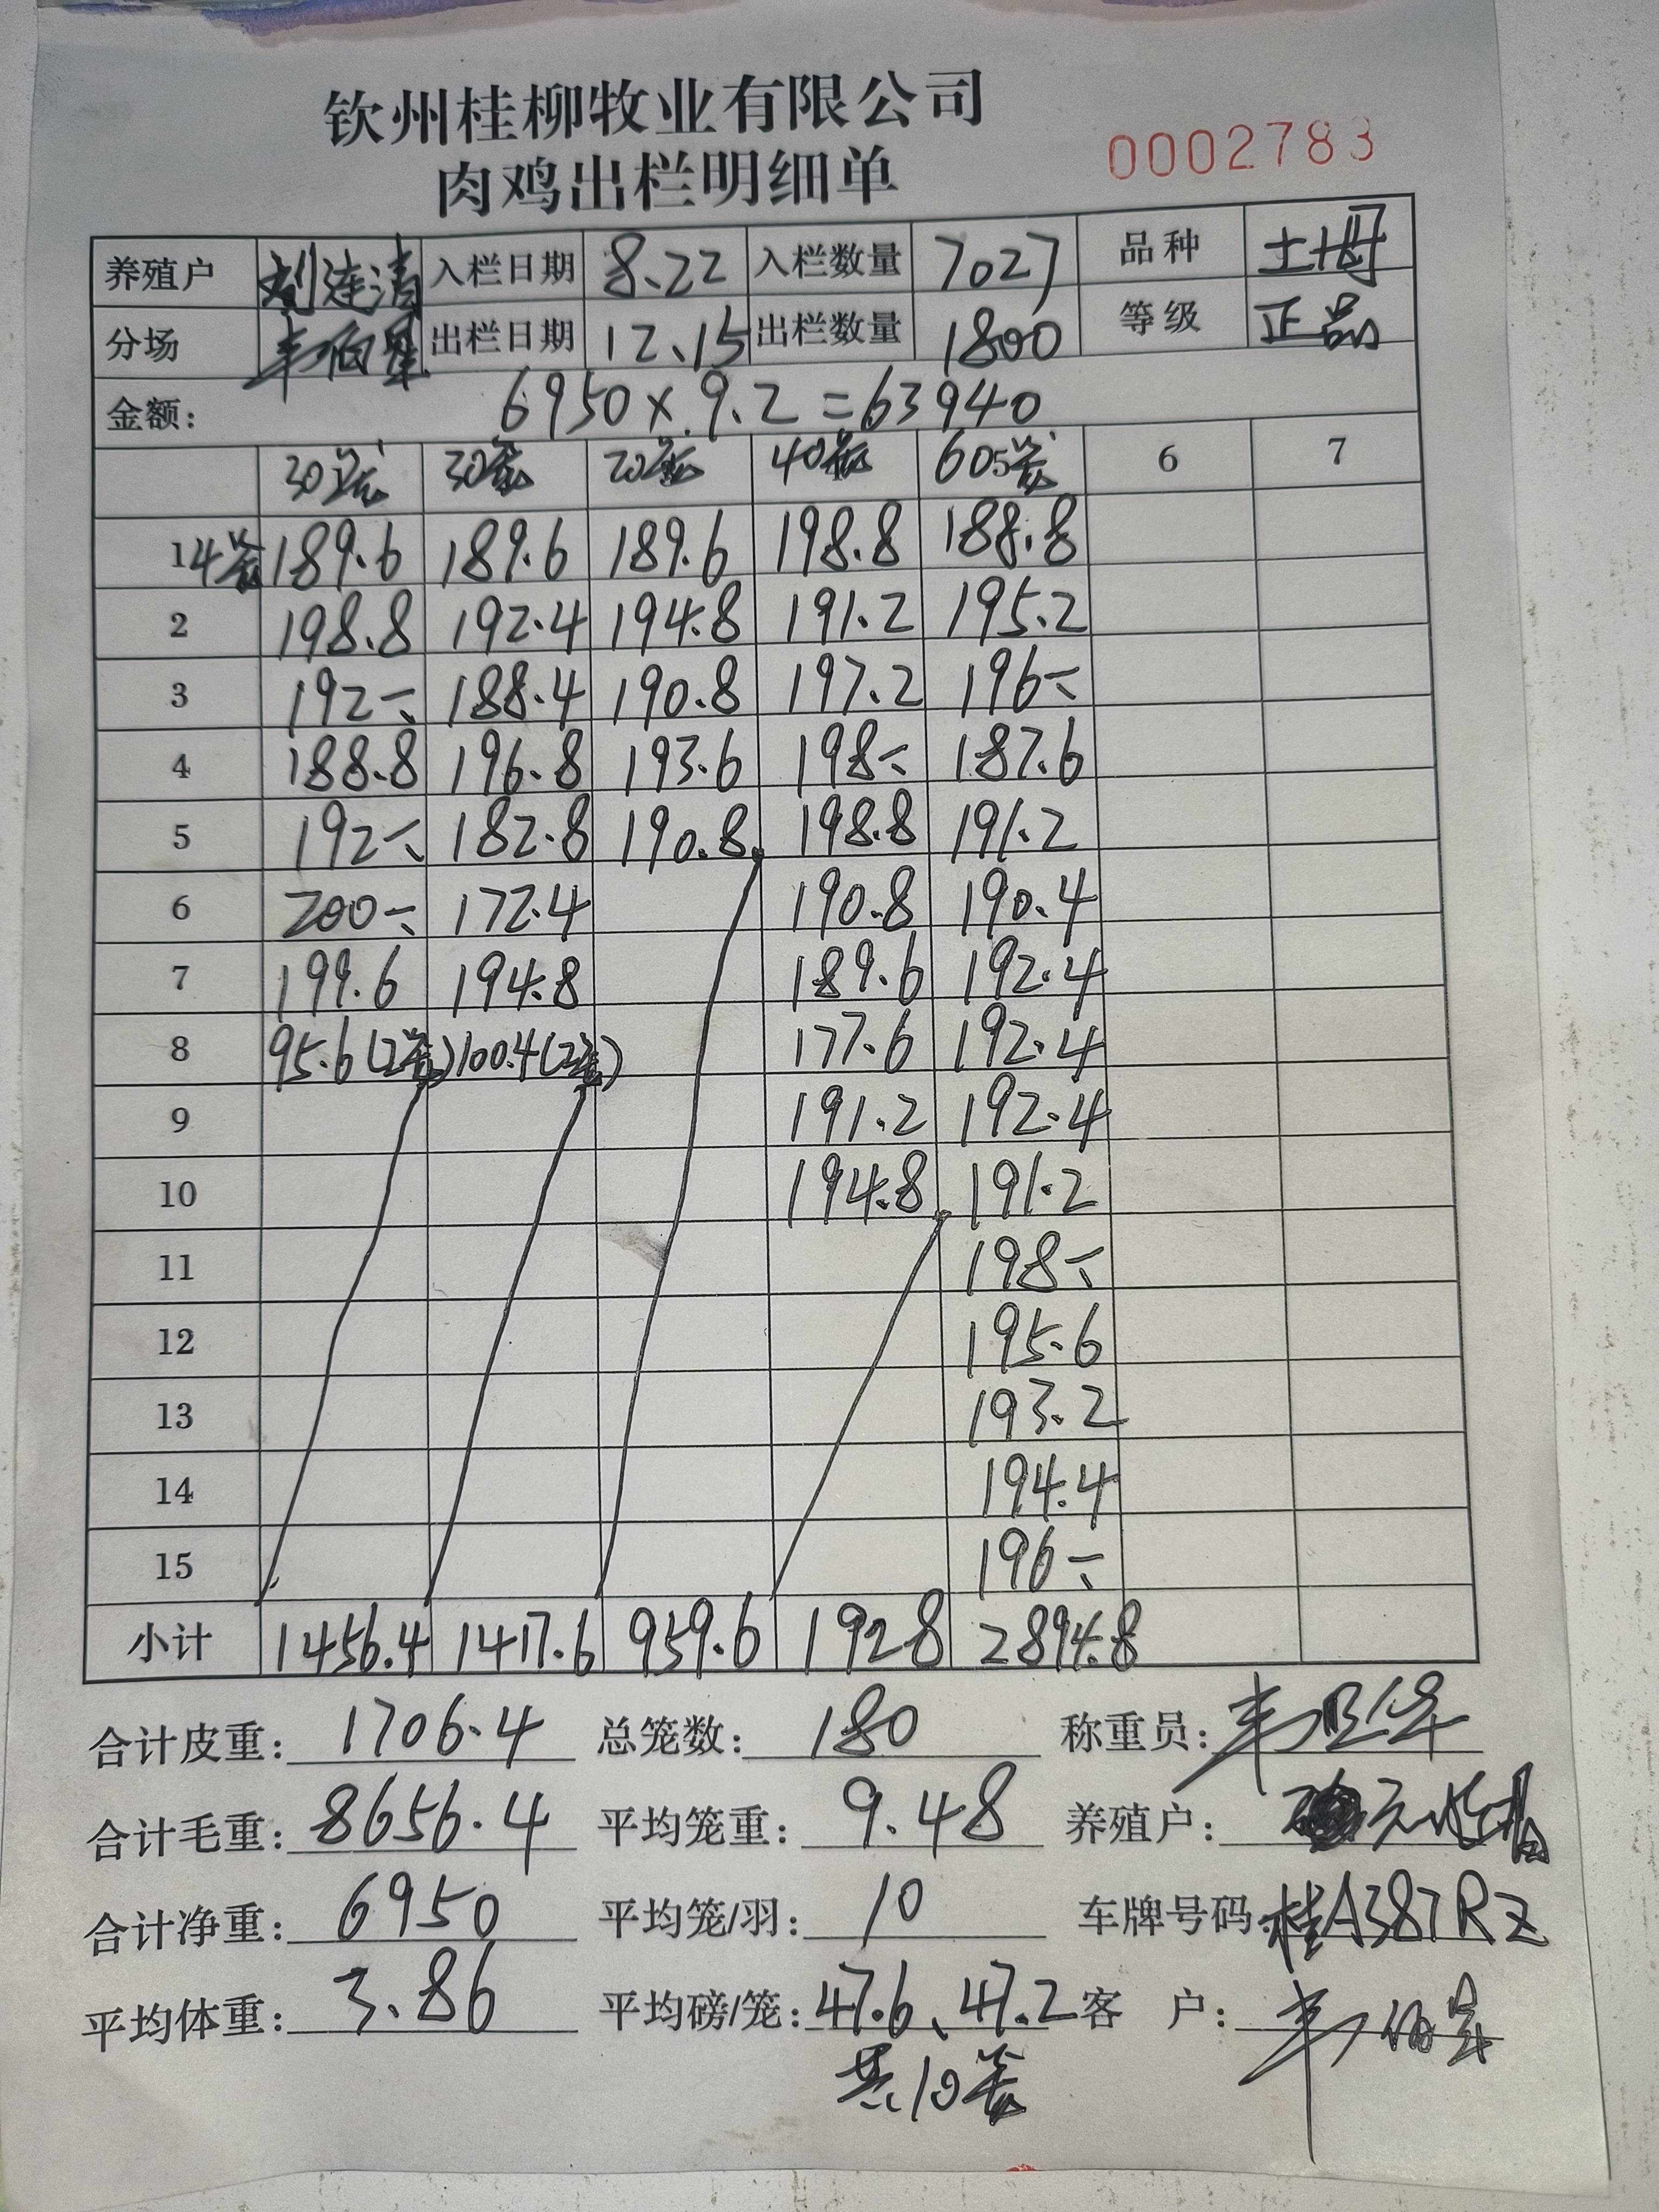 钦州桂柳牧业有限公司
肉鸡出栏明细单 0002783
养殖户 刘连清 入栏日期 8.22 入栏数量 7027 品种 土母
分场 出栏日期 12.15 出栏数量 1800 等级 正品
金额: 6950×9.2=63940
30笼 30笼 20笼 40笼 60笼 6 7
1 4笼 189.6 189.6 189.6 198.8 188.8
2 198.8 192.4 194.8 191.2 195.2
3 192- 188.4 190.8 197.2 196-
4 188.8 196.8 193.6 198- 187.6
5 192- 182.8 190.8 198.8 191.2
6 200- 172.4 190.8 190.4
7 199.6 194.8 189.6 192.4
8 95.6(2笼) 100.4(2笼) 177.6 192.4
9 191.2 192.4
10 194.8 191.2
11 198-
12 195.6
13 193.2
14 194.4
15 196-
小计 1456.4 1417.6 959.6 1928 2894.8
合计皮重: 1706.4 总笼数: 180 称重员:
合计毛重: 8656.4 平均笼重: 9.48 养殖户:
合计净重: 6950 平均笼/羽: 10 车牌号码: 桂A387RZ
平均体重: 3.86 平均磅/笼: 47.6、47.2 客 户:
共10笼